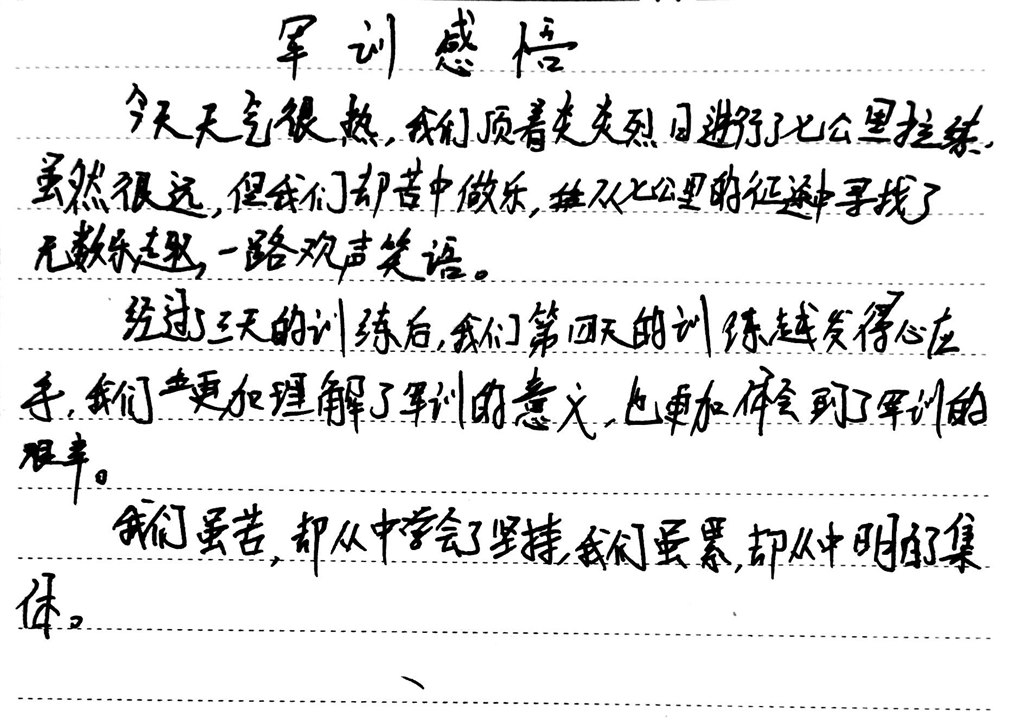 军训感悟
今天天气很热，我们顶着炎炎烈日进行了七公里拉练，
虽然很远，但我们却苦中做乐，从七公里的征途中寻找了
无数乐趣，一路欢声笑语。
经过了三天的训练后，我们第四天的训练越发得心应
手，我们更加理解了军训的意义，也更加体会到了军训的
艰辛。
我们虽苦，却从中学会了坚持，我们虽累，却从中明白了集
体。